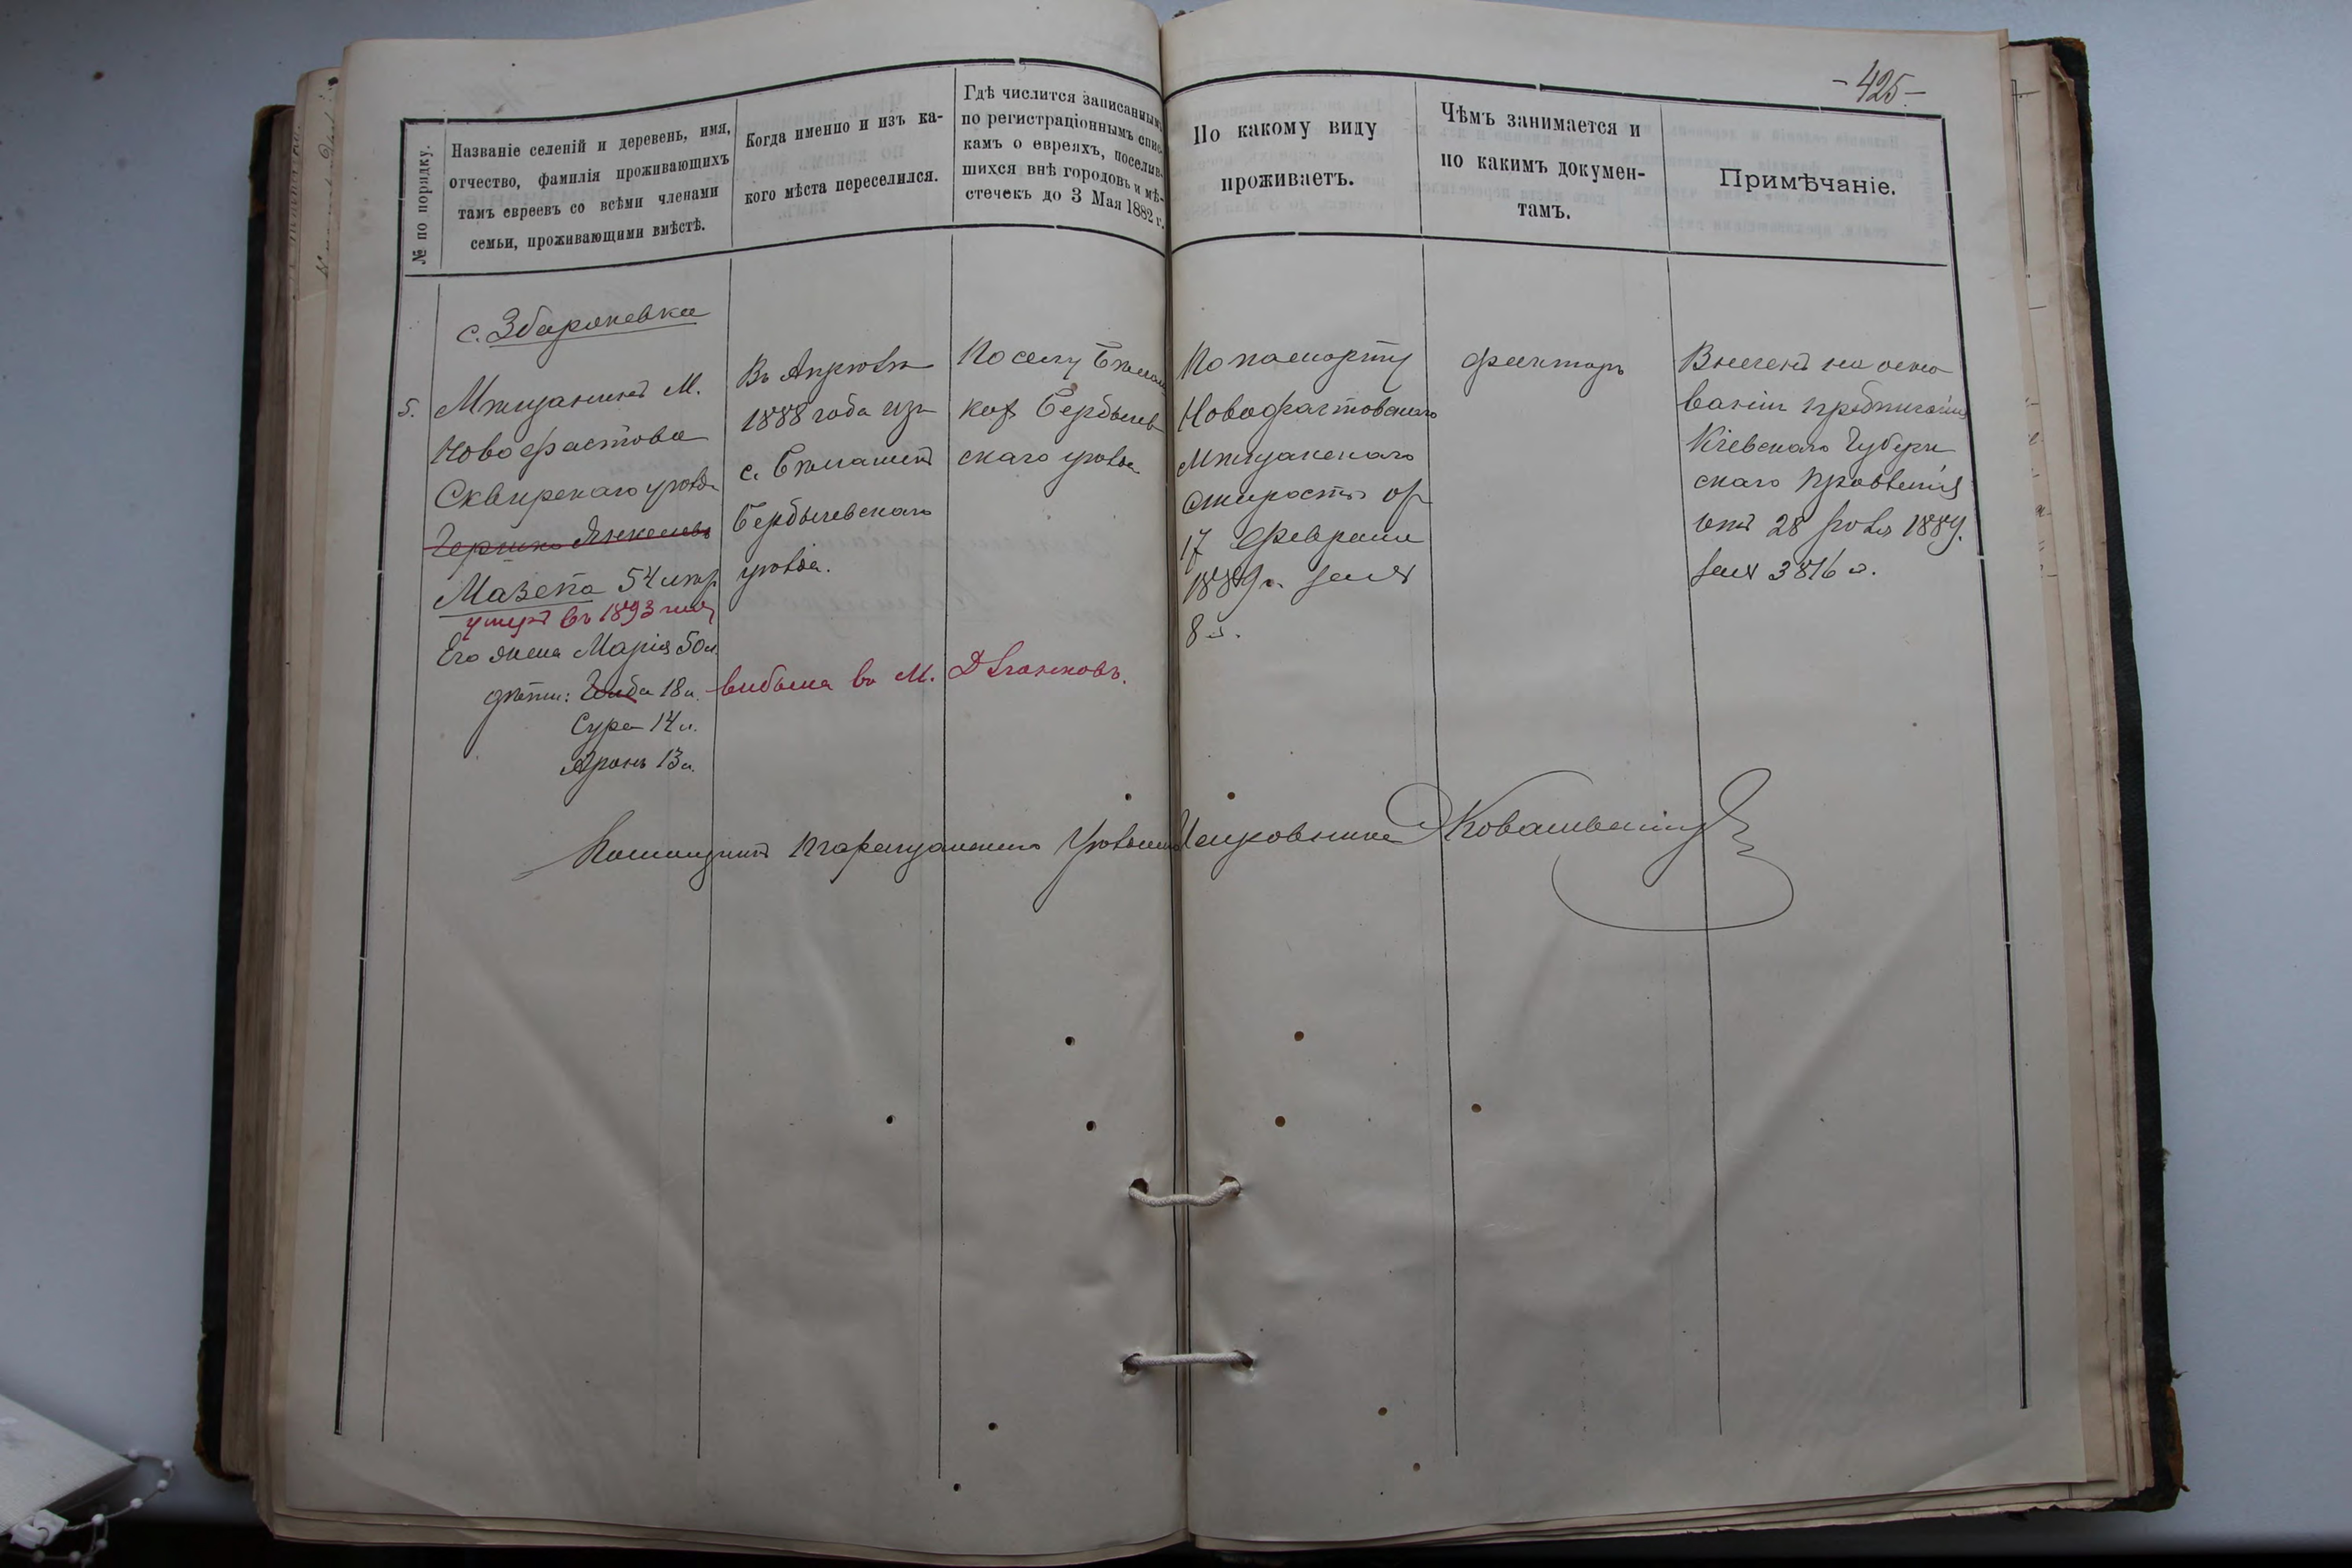 -425-
№ по порядку.
Названіе селеній и деревень, имя,
отчество, фамилія проживающихъ
тамъ евреевъ со всѣми членами
семьи, проживающими вмѣстѣ.
Когда именно и изъ ка-
кого мѣста переселился.
Гдѣ числится записаннымъ
по регистраціоннымъ спис-
камъ о евреяхъ, поселив-
шихся внѣ городовъ и мѣ-
стечекъ до 3 Мая 1882 г.
По какому виду
проживаетъ.
Чѣмъ занимается и
по какимъ докумен-
тамъ.
Примѣчаніе.
с. Збаражевка
5.
Мѣщанинъ М.
Новофастова
Сквирскаго уѣзда
Гершко Янкелевъ
Мазепа 54 лѣтъ
умеръ въ 1893 году
Его жена Марія 50 л.
дѣти: 18 л.
Сура 14 л.
Аронъ 13 л.
Въ Апрѣлѣ
1888 года изъ
с.
Бердичевскаго
уѣзда.
выбыла въ М. Дзюньковъ.
По селу
Бердичев
скаго уѣзда
По паспорту
Новофастовскаго
Мѣщанскаго
Старосты от
17 Февраля
1889 г. за №
8 м.
факторъ
Внесенъ на осно
ваніи предписанія
Кіевскаго Губерн
скаго Правленія
отъ 28 1889.
за № 3816 м.
Помощникъ Уѣзднаго Исправника